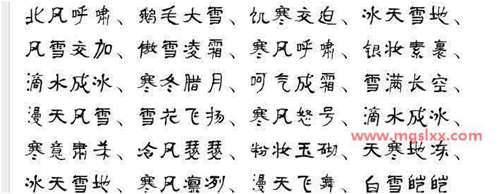 北风呼啸、鹅毛大雪、饥寒交迫、冰天雪地、
风雪交加、傲雪凌霜、寒风呼啸、银妆素裹、
滴水成冰、寒冬腊月、呵气成霜、雪满长空、
漫天风雪、雪花飞扬、寒风怒号、滴水成冰、
www.mgslxx.com
寒意肃杀、冷风瑟瑟、粉妆玉砌、天寒地冻、
冰天雪地、寒风凛冽、漫天飞舞、白雪皑皑